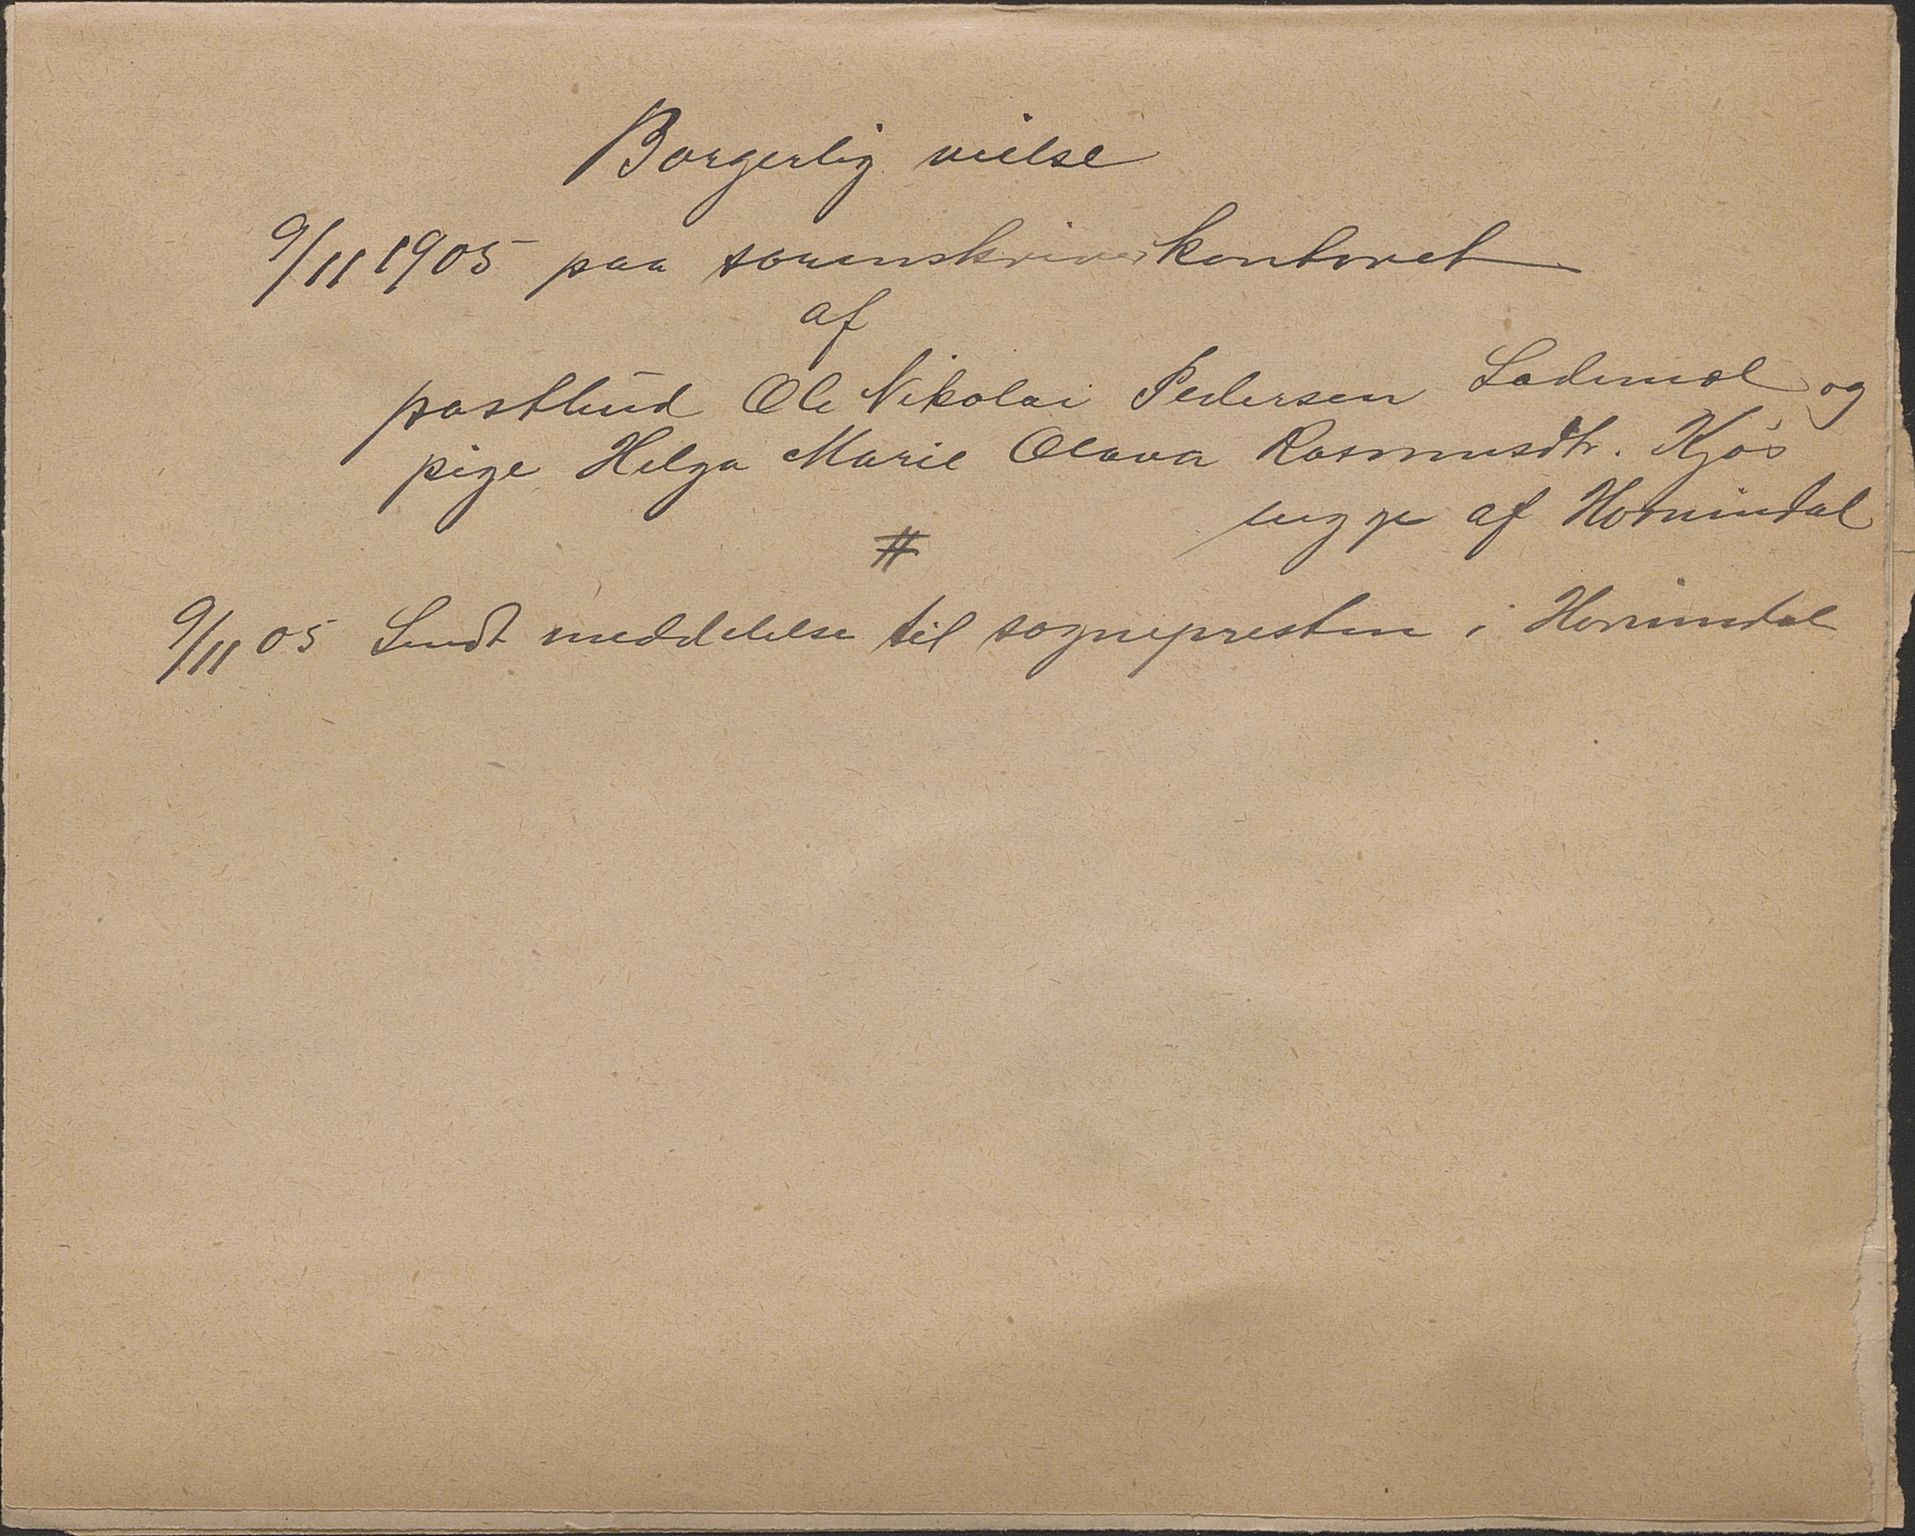 Borgerlig vielse
9/11 1905 paa sorenskriverkontoret
af
postbud Ole Nikolai Pedersen Lademoe og
pige Helga Marie Olava Rasmusdtr. Kjøs
af Hornindal
#
9/11 05 Sendt meddelelse til sognepresten i Hornindal